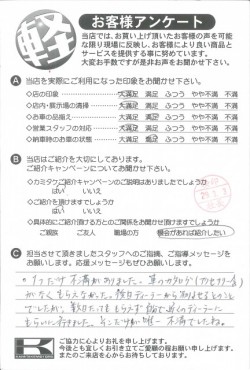 軽
お客様アンケート
当店では、お買い上げ頂いたお客様の声を可能
な限り現場に反映し、お客様により良い商品と
サービスを提供する事に努めています。
大変お手数ですが是非お声をお聞かせ下さい。
A 当店を実際にご利用になった印象をお聞かせ下さい。
◇店の印象 大満足 満足 ふつう やや不満 不満
◇店内・展示場の清掃 大満足 満足 ふつう やや不満 不満
◇お車の品揃え 大満足 満足 ふつう やや不満 不満
◇営業スタッフの対応 大満足 満足 ふつう やや不満 不満
◇納車時のお車の状態 大満足 満足 ふつう やや不満 不満
B 当店はご紹介を大切にしております。
ご紹介キャンペーンについてお聞かせ下さい。
◇カミタケご紹介キャンペーンのご説明はありましたでしょうか
はい いいえ
◇ご紹介を頂けますでしょうか
はい いいえ
◇具体的にご紹介頂ける方とのご関係をお聞かせ頂けますでしょうか
ご親族 ご友人 職場の方 機会があれば紹介したい
C 担当させて頂きましたスタッフへのご指導、ご指導メッセージを
お願いします。応援メッセージもぜひお願いします。
・1つだけ不満がありました。車のカタログ(アクセサリー含)
がなくもらえなかった。
でしたが、
もらいに行きました。 唯一不満でしたね。
K
ご協力に心よりお礼を申し上げます。
今後とも宜しくお引き立てご愛顧の程お願い申し上げます。
またのご来店を心からお待ちしております。